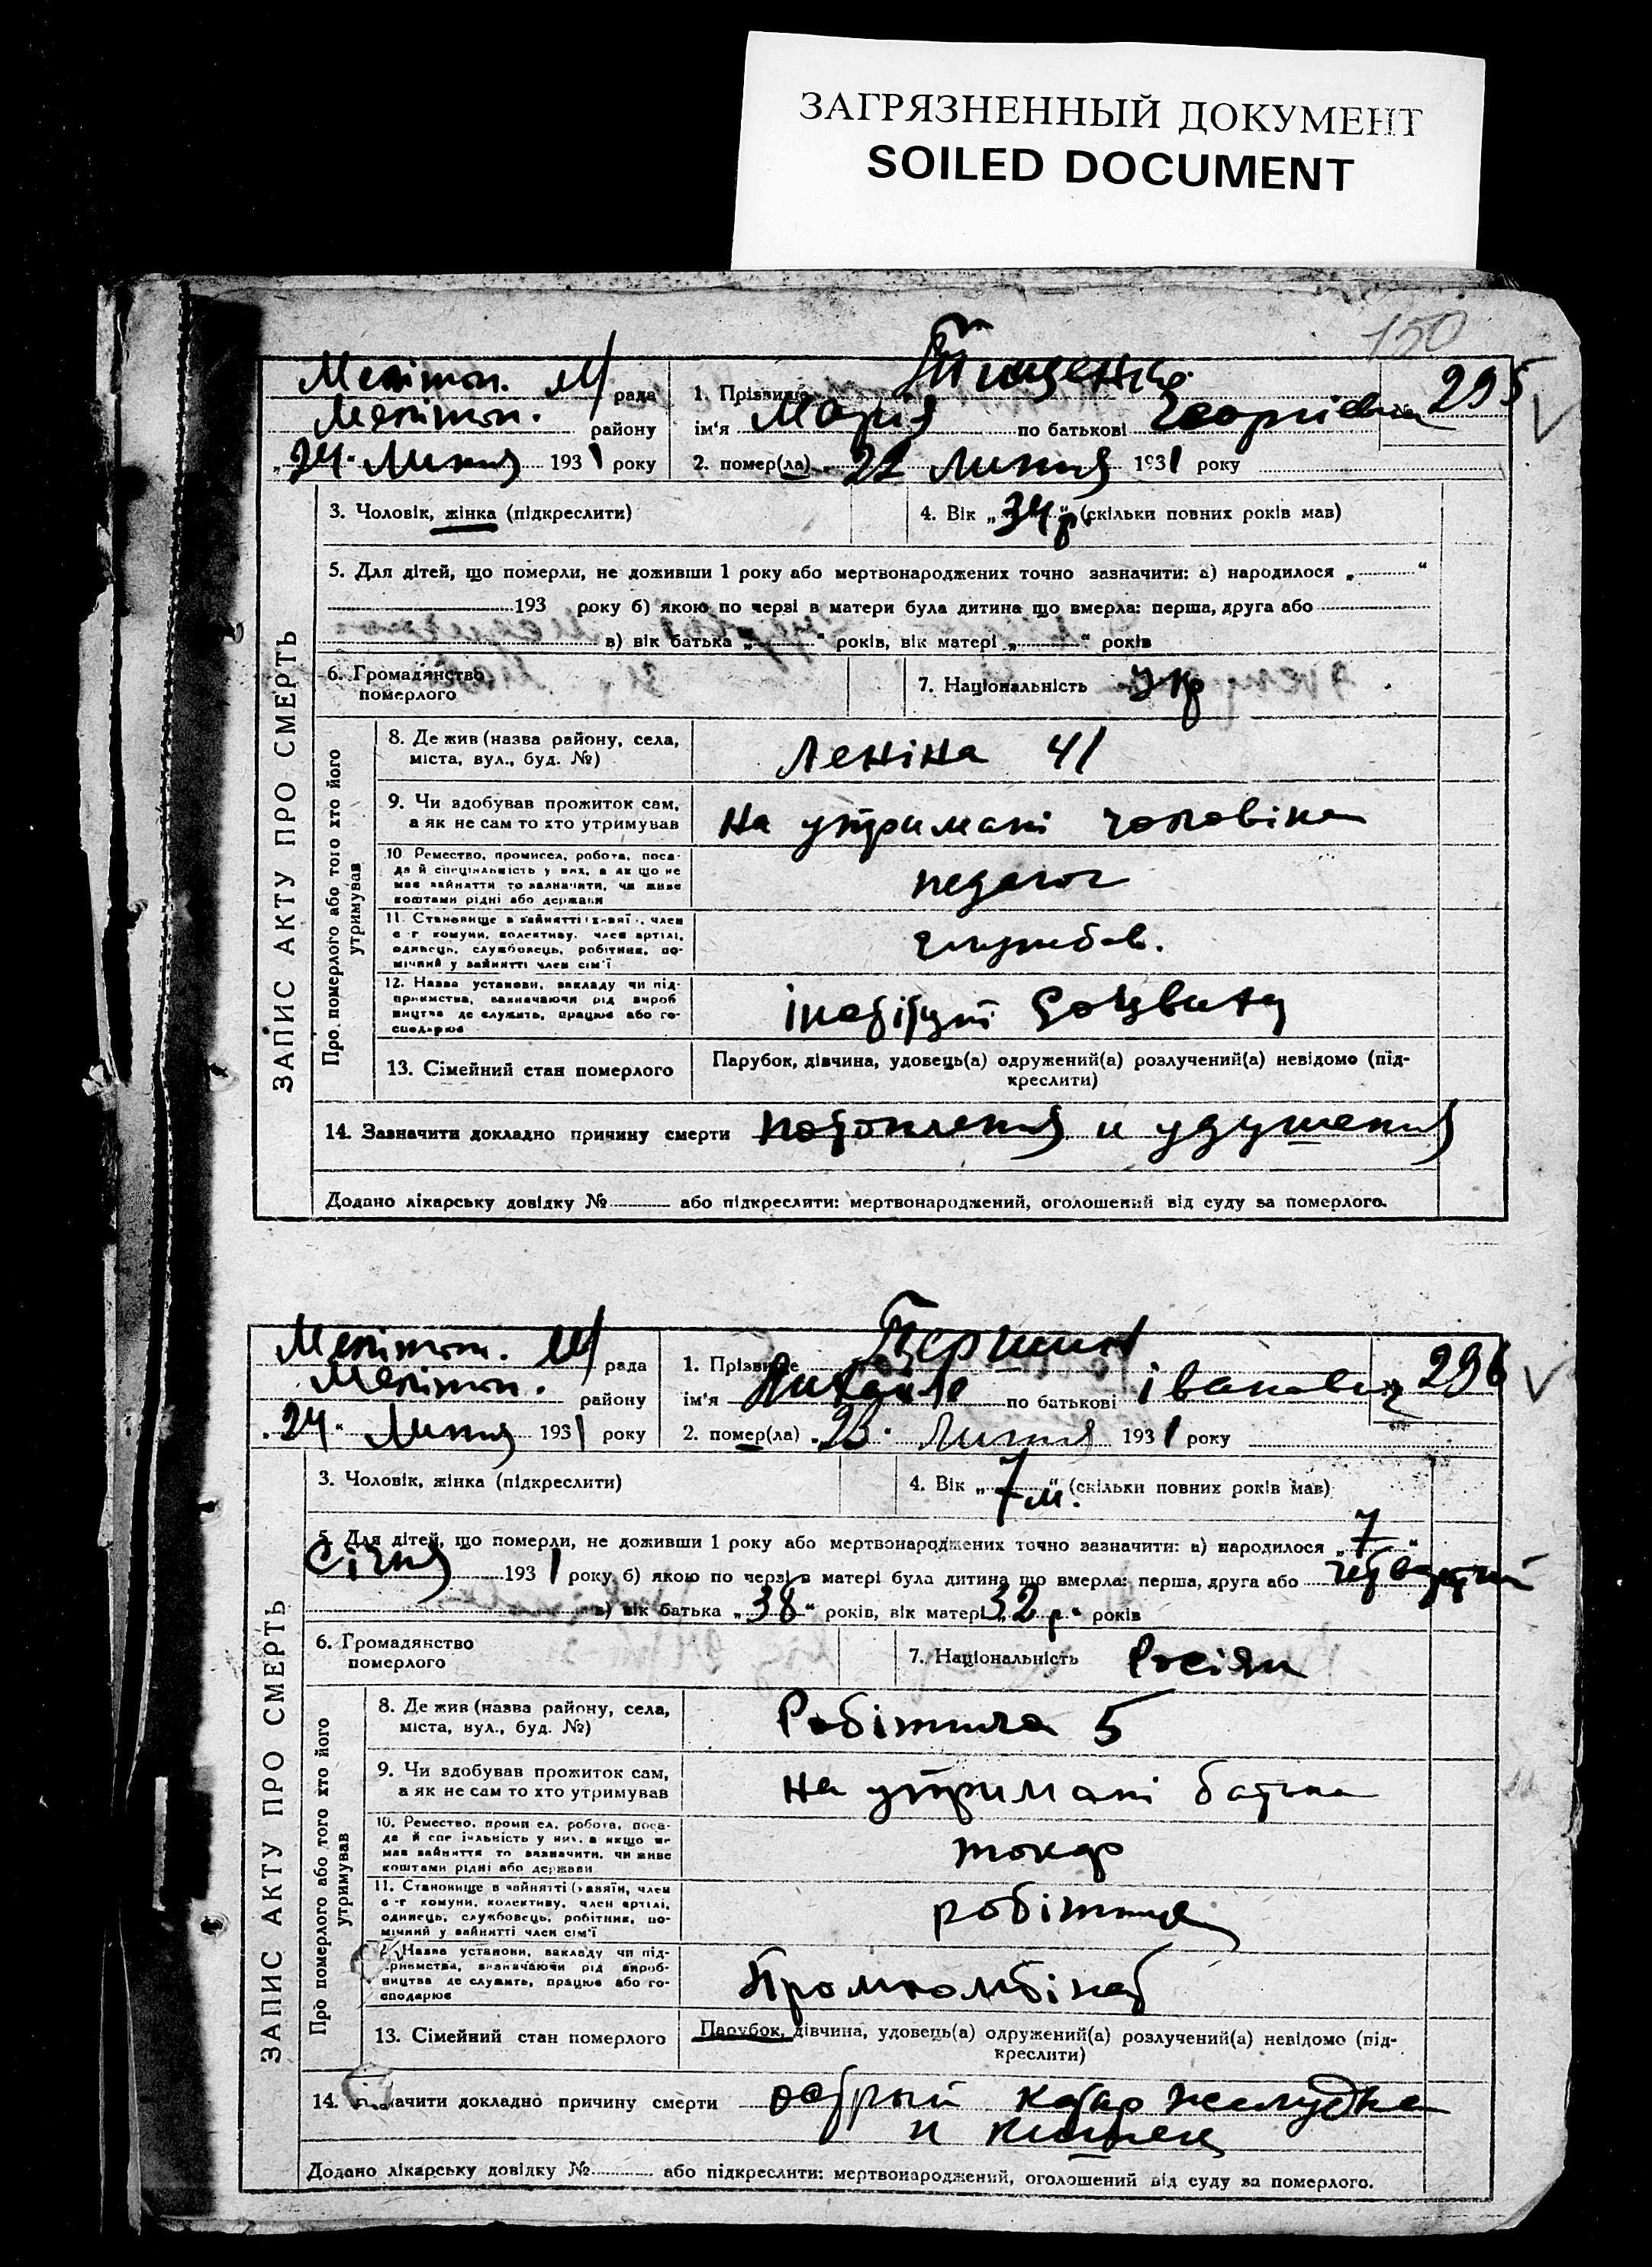 ЗАГРЯЗНЕННЫЙ ДОКУМЕНТ
SOILED DOCUMENT
150
ЗАПИС АКТУ ПРО СМЕРТЬ
Мелітоп. М/рада
Мелітоп. району
„24. Липня 1931 року
1. Прізвище Тищенко
ім'я Марія по батькові Георгіевна
295
2. помер(ла) „22 Липня 1931 року
3. Чоловік, жінка (підкреслити)
4. Вік „34 р“ (скільки повних років мав)
5. Для дітей, що померли, не доживши 1 року або мертвонароджених точно зазначити: а) народилося „ “
193 року б) якою по черзі в матери була дитина що вмерла: перша, друга або
в) вік батька „ “ років, вік матері „ “ років
6. Громадянство
померлого
7. Національність Укр
Про померлого або того хто його
утримував
8. Де жив (назва району, села,
міста, вул., буд. №)
Леніна 41
9. Чи здобував прожиток сам,
а як не сам то хто утримував
на утримані чоловіка
10. Ремество, промисел, робота, поса-
да й спеціяльність у них, а як що не
мав зайняття то зазначити, чи живе
коштами рідні або держави
педагог
11. Становище в зайнятті (хазяїн, член
с-г комуни, колективу, член артілі,
одинець, службовець, робітник, по-
мічний у зайнятті член сім'ї
службов.
12. Назва установи, закладу чи під-
приємства, зазначаючи рід вироб
ництва де служить, працює або го-
сподарює
інстітут Соцвиху
13. Сімейний стан померлого
Парубок, дівчина, удовець(а) одружений(а) розлучений(а) невідомо (під-
креслити)
14. Зазначити докладно причину смерти потопления и удушения
Додано лікарську довідку № або підкреслити: мертвонароджений, оголошений від суду за померлого.
ЗАПИС АКТУ ПРО СМЕРТЬ
Мелітоп. М/рада
Мелітоп. району
„24. Липня 1931 року
1. Прізвище
ім'я Михайло по батькові Іванович
296
2. помер(ла) „23. Липня 1931 року
3. Чоловік, жінка (підкреслити)
4. Вік „7 м.“ (скільки повних років мав)
5. Для дітей, що померли, не доживши 1 року або мертвонароджених точно зазначити: а) народилося „7“
Січня 1931 року б) якою по черзі в матері була дитина що вмерла: перша, друга або четвертий
в) вік батька „38“ років, вік матері „32 р.“ років
6. Громадянство
померлого
7. Національність Росіян
Про померлого або того хто його
утримував
8. Де жив (назва району, села,
міста, вул., буд. №)
Робітнича 5
9. Чи здобував прожиток сам,
а як не сам то хто утримував
на утримані батька
10. Ремество, промисел, робота, поса-
да й спеціяльність у них, а якщо не
мав зайняття то зазначити, чи живе
коштами рідні або держави
токар
11. Становище в зайнятті (хазяїн, член
с-г комуни, колективу, член артілі,
одинець, службовець, робітник, по-
мічний у зайнятті член сім'ї
робітниц
12. Назва установи, закладу чи під-
приємства, зазначаючи рід вироб-
ництва де служить, працює або го-
сподарює
Промкомбінат
13. Сімейний стан померлого
Парубок, дівчина, удовець(а) одружений(а) розлучений(а) невідомо (під-
креслити)
14. Зазначити докладно причину смерти острый катар желудка
и кишек
Додано лікарську довідку № або підкреслити: мертвонароджений, оголошений від суду за померлого.